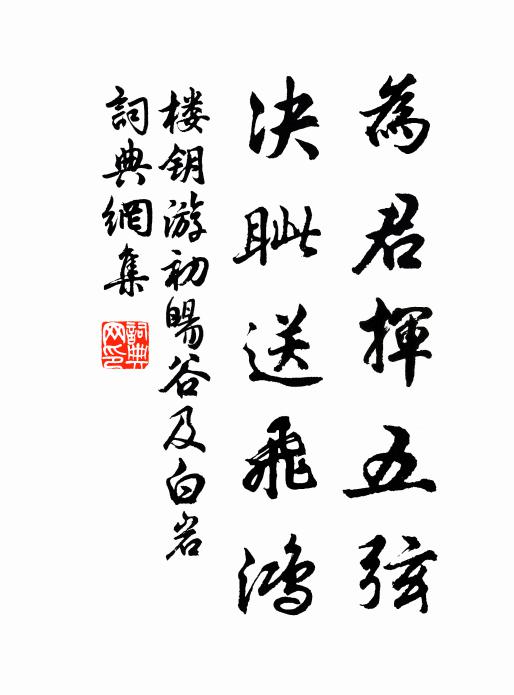 為君揮五弦
决眦送飛鸿
楼钥游初暘谷及白岩
詞典網集
詞典
网印